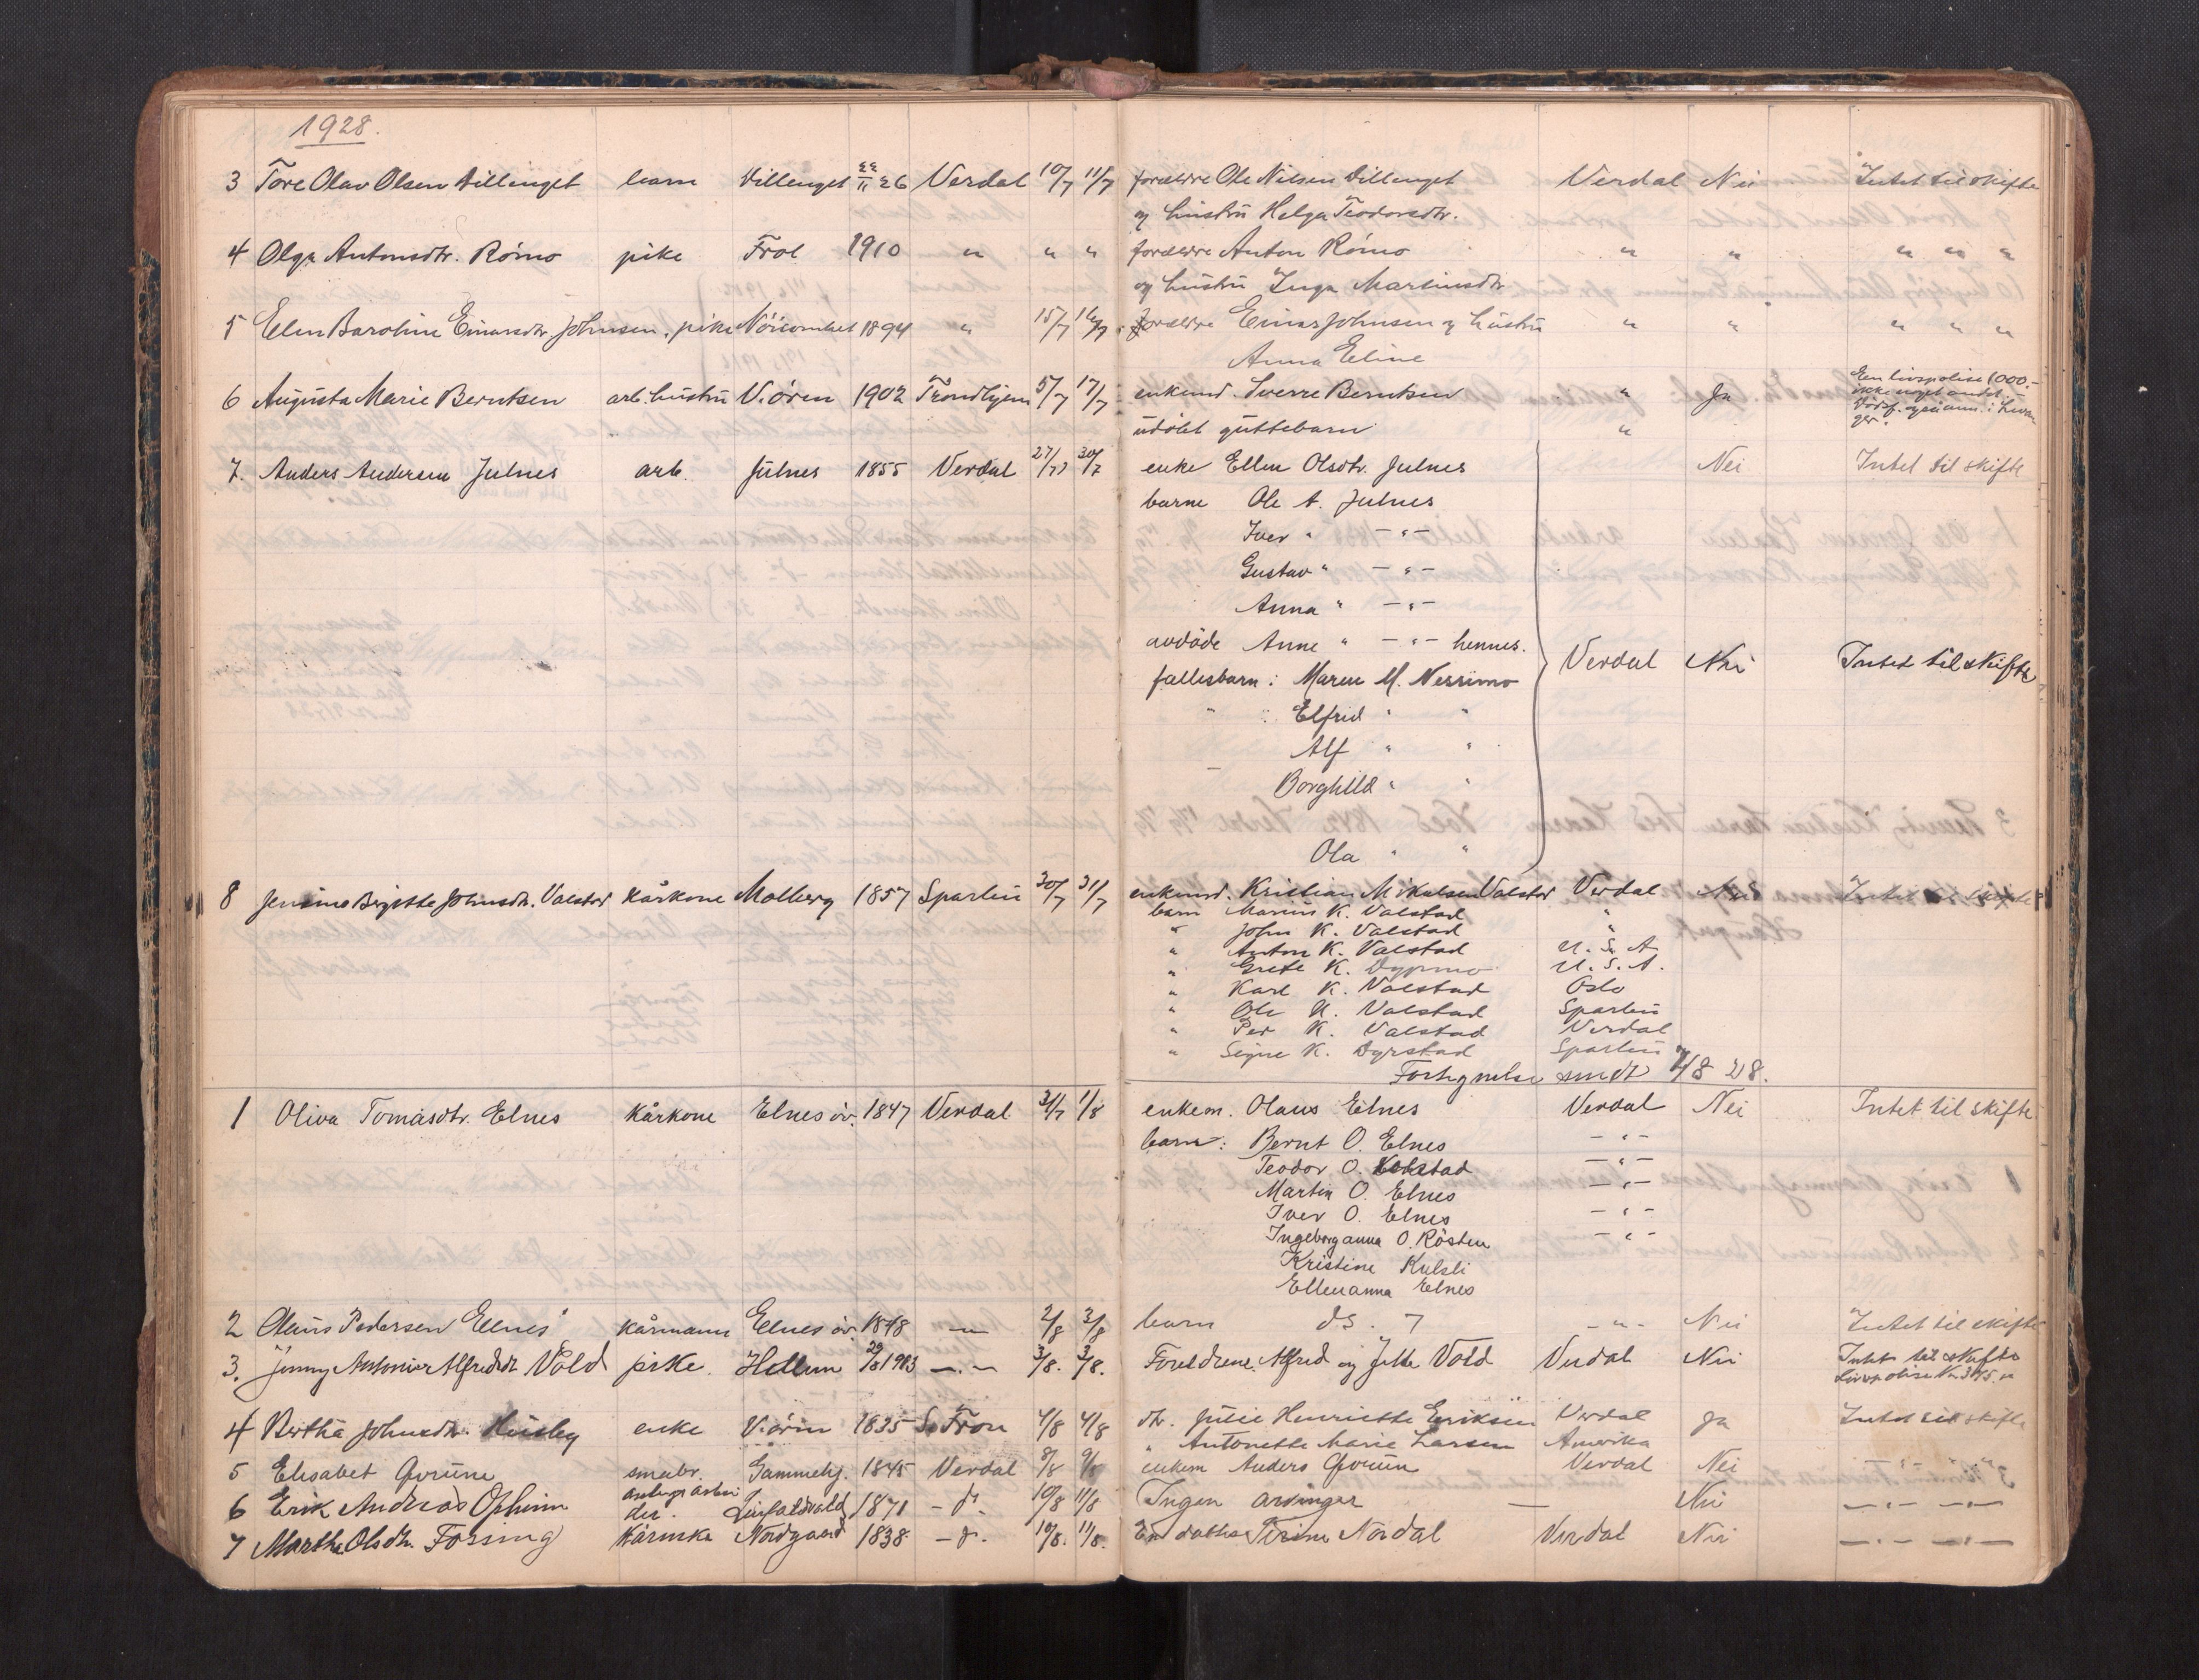 1928.
3 Tore Olav Olsen Dillinget barn Villenget 22/11 26 Verdal 10/7 11/7 foreldre Ole Nilsen Villenget Verdal Nei Intet til skifte
og hustru Helga Teodorsdtr.
4 Olga Antonsdtr. Römo pike Frol 1910 " " " foreldre Anton Römo " " " " "
og hustru Inga Martinsdtr
5 Elen Baroline Einarsdtr. Johnsen. pike 1894 " 15/7 16/7 foreldre Einar Johnsen og hustru " " " " "
Anna Eline
6 Augusta Marie Berntsen arb. hustru V.ören 1902 Trondhjem 5/7 17/7 enkemd. Sverre Berntsen " Ja En livspolise 1000.-
ikke noget andet.
udöbt guttebarn "
7. Anders Andersen Julnes arb. Julnes 1855 Verdal 27/7 30/7 enke Ellen Olsdtr. Julnes Nei Intet til skifte
barne Ole A. Julnes
Iver " - " -
Gustav " - " -
Anna " - " -
avdöde Anne " - " - hennes.
fellesbarn: Maren M. Nessimo Verdal Nei Intet til skifte
" Elfrid " "
Alf " "
Borghild " "
Ola " "
8 Jensine Birgitte Johnsdtr. Valstad kårkone Molberg 1857 Sparbu 30/7 31/7 enkemd. Kristian Mikalsen Valstad Verdal Nei Intet til skifte
barn Marius K. Valstad "
" John K. Valstad
" Anton K. Valstad U. S. A
" Grete K. U. S. A.
" Karl K. Valstad Oslo
" Ole K. Valstad Sparbu
" Per K. Valstad Verdal
" Signe K. Dyrstad Sparbu
Fortegnelse sendt 4/8 28.
1 Oliva Tomasdtr. Elnes Kårkone Elnes öv. 1847 Verdal 31/7 1/8 enkem. Olaus Elnes Verdal Nei Intet til skifte
barn: Bernt O. Elnes - " -
Teodor O. Kolstad - " -
Martin O. Elnes - " -
Iver O. Elnes - " -
Ingeborganna O. Rösten - " -
Kristine Kulsli
Ellenanna Elnes
2 Olaus Pedersen Elnes kårmann Elnes öv. 1848 - " - 2/8 3/8 barn ds. 7 - " - Nei Intet til skifte
3. Jenny Antonie Alfredsdt Vold pike. Hellem 29/8 1903 - " - 3/8. 3/8. Foreldrene. Alfred og Jette Vold Verdal Nei Intet til skifte
Livspolise
4 Bertha Johnsdtr. Husby enke V.ören 1835 S. Fron 4/8 4/8 dtr. Julie Henriette Eriksen Verdal Ja Intet til skifte
" Antonette Marie Larsen Amerika
5 Elisabet Qvrune smabr. Gammelg. 1845 Verdal 8/8 9/8 enkem Anders Verdal Nei - " - - " -
6 Erik Andreas Opheim 1871 - d. 10/8 11/8 Ingen arvinger — Nei - " - - " -
7 Martha Olsdtr. Kårenke Nordgaard 1838 - d. 10/8. 11/8. En datter Serine Nordal Verdal Nei - " - - " -